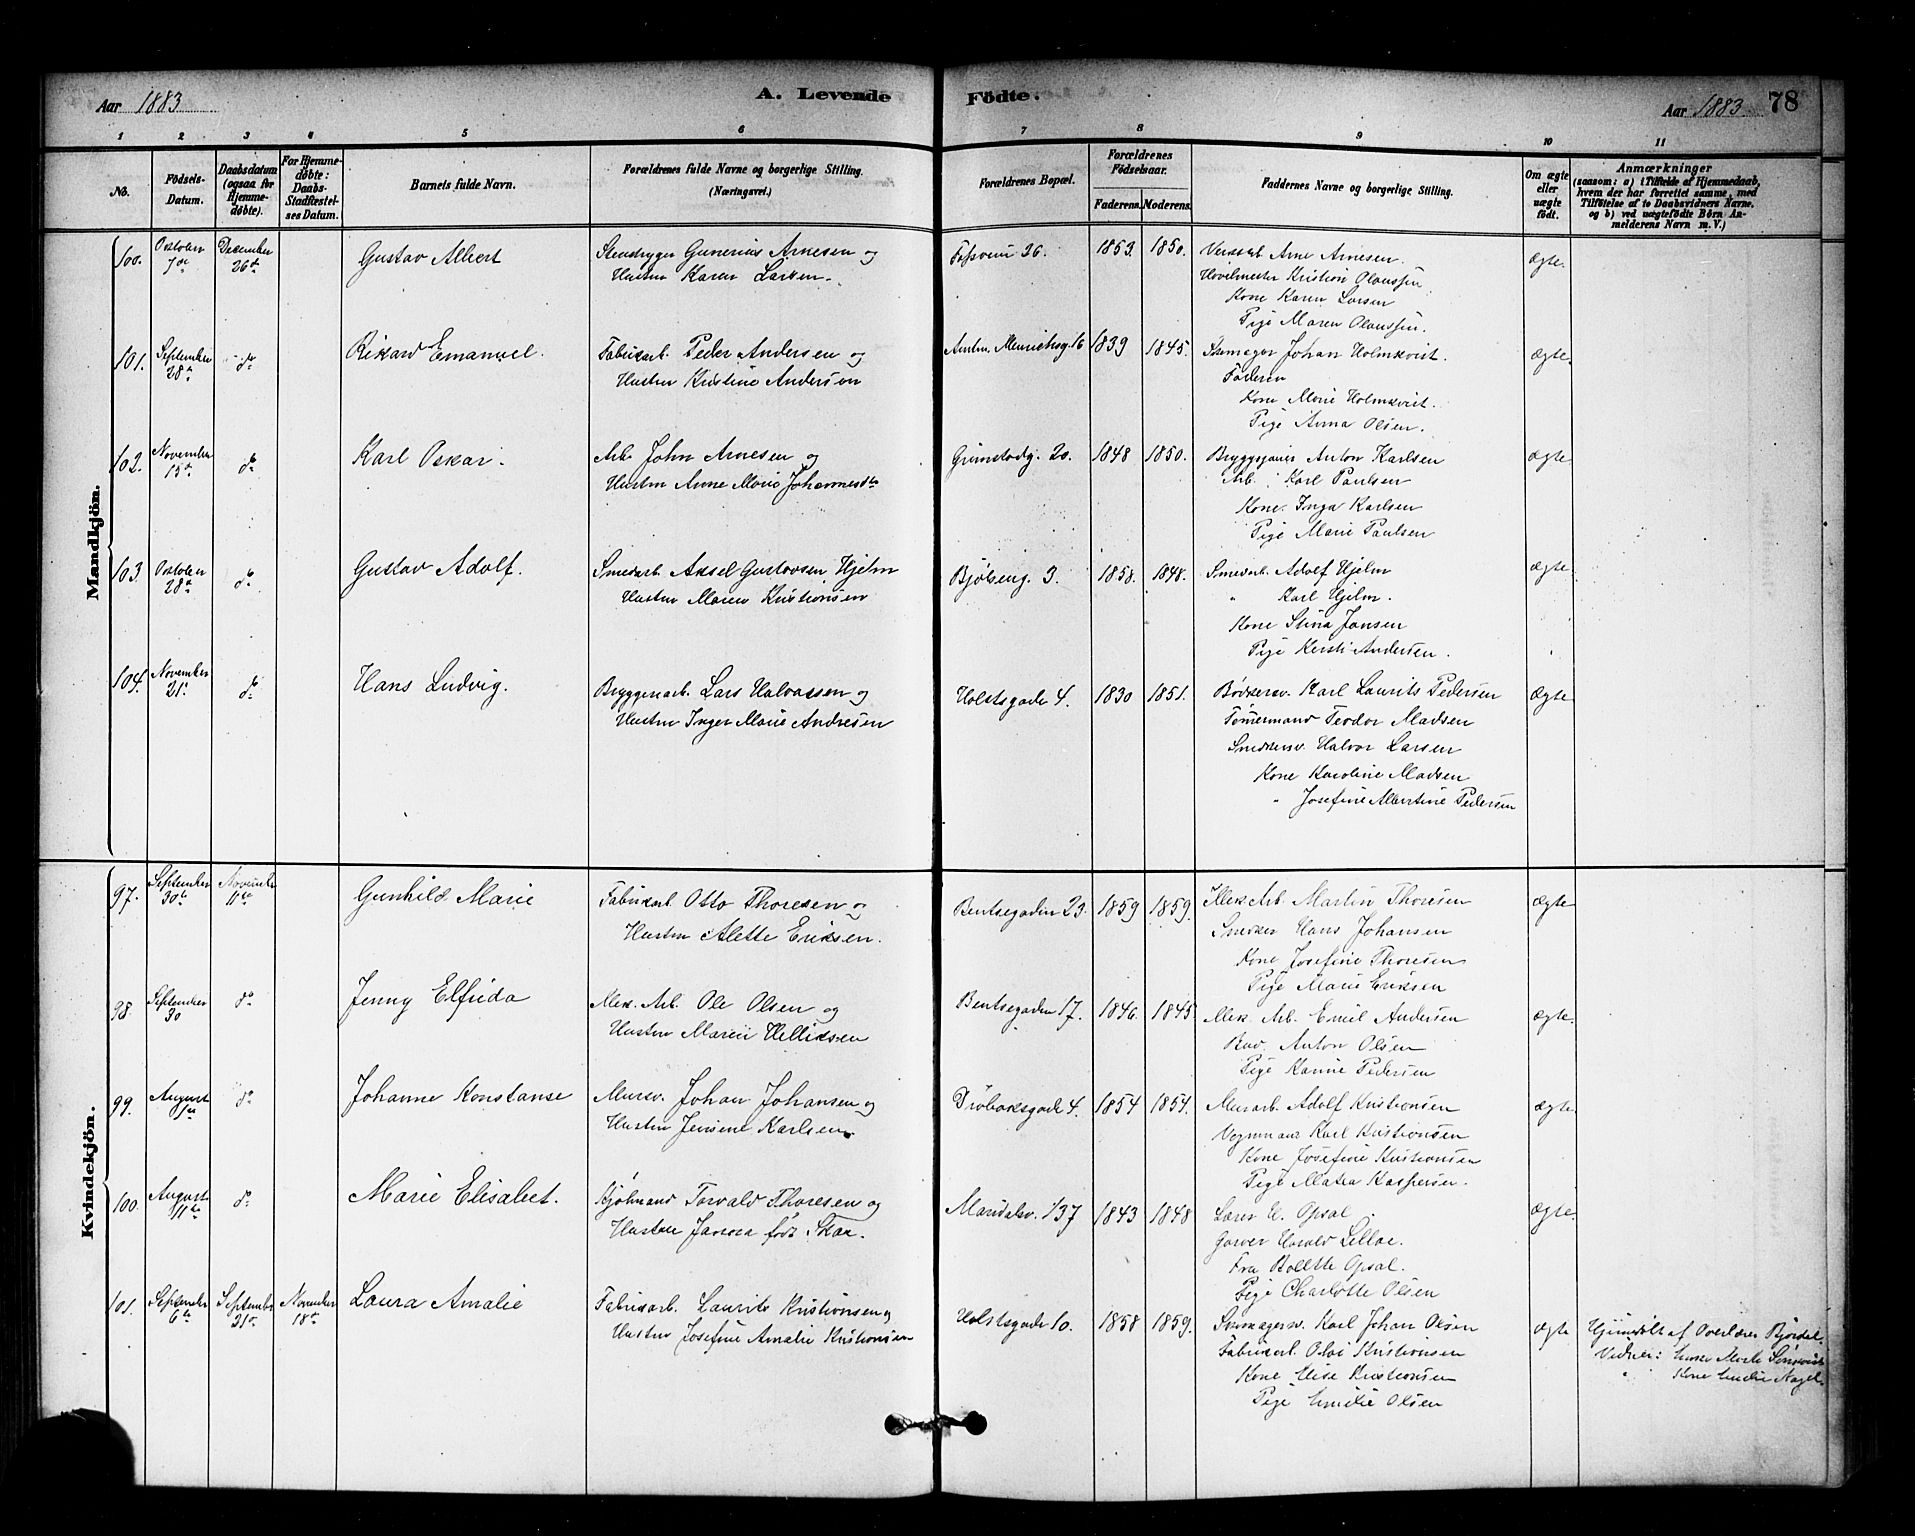 Aar 1883
A. Levende
Födte.
Aar 1883
78
1 2 3 4 5 6 7 8 9 10 11
No.
Födsels-
Datum.
Daabsdatum
(ogsaa for
Hjemme-
døbte).
For Hjemme-
døbte:
Daabs-
Stadfæstel-
ses Datum.
Barnets fulde Navn.
Forældrenes fulde Navne og borgerlige Stilling.
(Næringsvei.)
Forældrenes Bopæl.
Forældrenes
Födselsaar.
Faderens. Moderens.
Faddernes Navne og borgerlige Stilling.
Om ægte
eller
uægte
født.
Anmærkninger
(saasom: a) i Tilfælde af Hjemmedaab,
hvem der har forrettet samme, med
Tilföielse af to Daabsvidners Navne,
og b) ved uægtefödte Börn An-
melderens Navn m.V.)
Mandkjön.
100. Oktober 7de December 26de Gustav Albert
Gunerius Arnesen og
Hustru Karen Larsen
Fossvein 26. 1853. 1850.
Arne Arnesen.
Kristian Olaussen
Kone Karen Larsen
Pige Maren Olaussen.
ægte.
101. September 28de do Rikard Emanuel.
Fabrikarb. Peder Andersen og
Hustru Kristine Andersen
16 1839 1845.
Skomager Johan Holmkvist.
Faderen
Kone Marie Holmkvist.
Pige Anna Olsen.
ægte.
102. November 15de do Karl Oskar.
Arb. John Arnesen og
Hustru Anne Marie Johannesdtr
Grimstadg. 20. 1848 1850.
Anton Karlsen
Arb. Karl Paulsen
Kone. Inga Karlsen
Pige Marie Paulsen
ægte
103. Oktober 28de do Gustav Adolf.
Smedarb. Aksel Gustavsen Hjelm
Hustru Maren Kristiansen
Bjølseng. 3. 1858. 1848.
Smedarb. Adolf Hjelm
" Karl Hjelm.
Kone Stina Jansen
Pige Kersti Andersen.
ægte
104. November 21. do Hans Ludvig.
Bryggeriarb. Lars Halvorsen og
Hustru Inger Marie Andresen
Holstsgade 4. 1830 1851.
Bødkersv. Karl Laurits Pedersen
Tømermand Teodor Madsen
Snedkersv. Halvor Larsen
Kone Karoline Madsen
" Josefine Albertine Pedersen
ægte
Kvindekjön.
97. September 30te November 11te Gunhild Marie
Fabrikarb. Otto Thoresen og
Hustru Alette Eriksen.
Bentsegaden 23. 1859 1859.
Mek Arb. Martin Thoresen
Snedker Hans Johansen
Kone Josefine Thoresen
Pige Marie Eriksen
ægte
98. September 30 do Jenny Elfrida
Mek. Arb. Ole Olsen og
Hustru Maren Helliksen
Bentsegaden 17. 1846. 1845
Mek. Arb. Emil Andersen
Anton Olsen
Pige Pedersen
ægte.
99. August do Johanne Konstanse
Mursv. Johan Johansen og
Hustru Jensine Karlsen.
Drøbaksgade 4. 1854 1854.
Murarb. Adolf Kristiansen
Vognmand Karl Kristiansen
Kone Josefine Kristiansen
Pige Matea Kaspersen.
ægte
100. August 11te do Marie Elisabet.
Torvald Thoresen og
Hustru født Skar.
Maridalsv. 137 1843 1848
Opsal
Garver Harald Lilloe.
Fru Bollette Opsal.
Pige Charlotte Olsen
ægte.
101. September 6te September 21de November 18de Laura Amalie
Fabrikarb. Laurits Kristiansen og
Hustru Josefine Amalie Kristiansen
Holstsgade 10. 1858 1859.
Skomagersv. Karl Johan Olsen
Fabrikarb. Olai Kristiansen
Kone Elise Kristiansen
Pige Emilie Olsen
ægte
Hjemdøbt af Overlærer Bjørdal.
Vidner:
" Kone Emilie